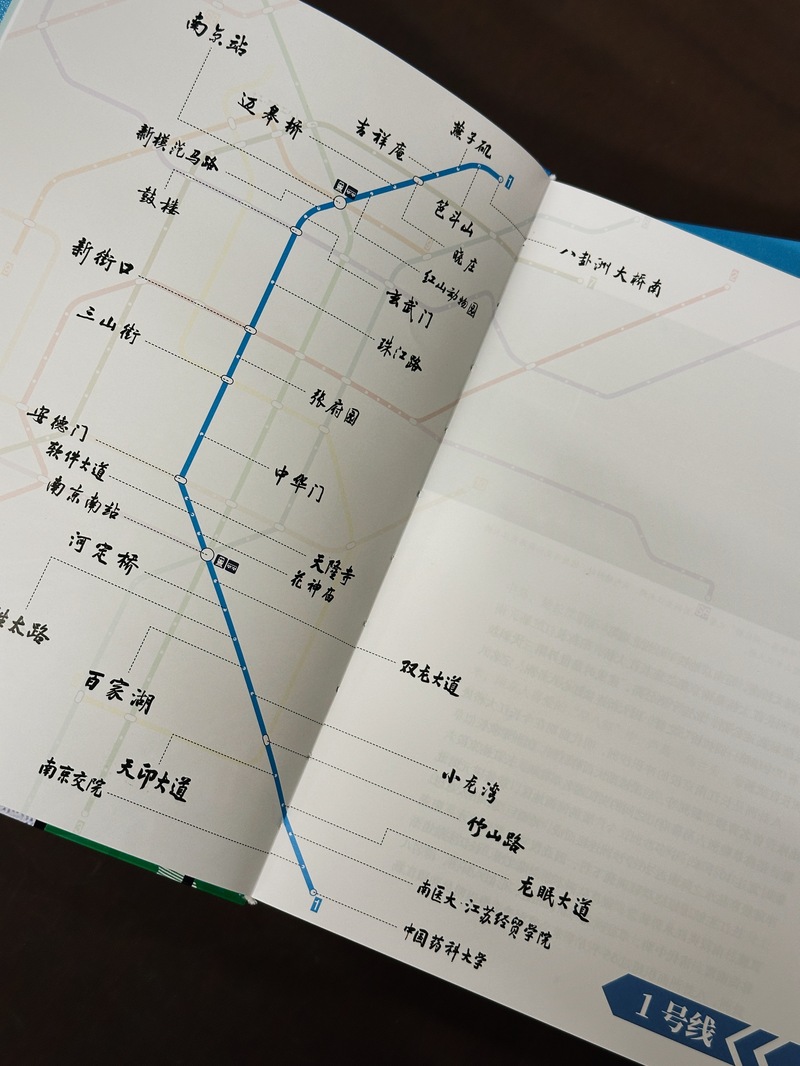 南京站
迈皋桥
吉祥庵
燕子矶
1
新模范马路
笆斗山
鼓楼
晓庄
八卦洲大桥南
红山动物园
新街口
玄武门
三山街
珠江路
张府园
安德门
软件大道
中华门
南京南站
天隆寺
河定桥
花神庙
胜太路
双龙大道
百家湖
天印大道
小龙湾
南京交院
竹山路
龙眠大道
南医大·江苏经贸学院
1
中国药科大学
1号线